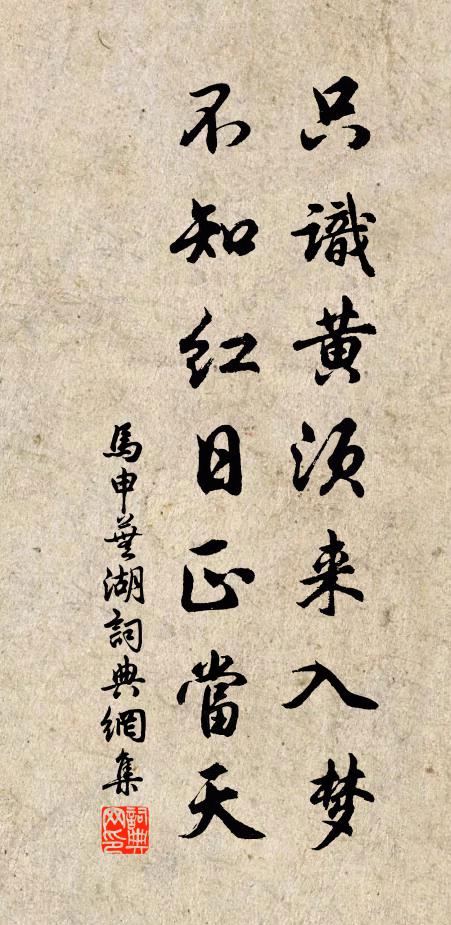 只識黄须来入梦
不知红日正當天
馬申蕪湖詞典網集
詞典网印